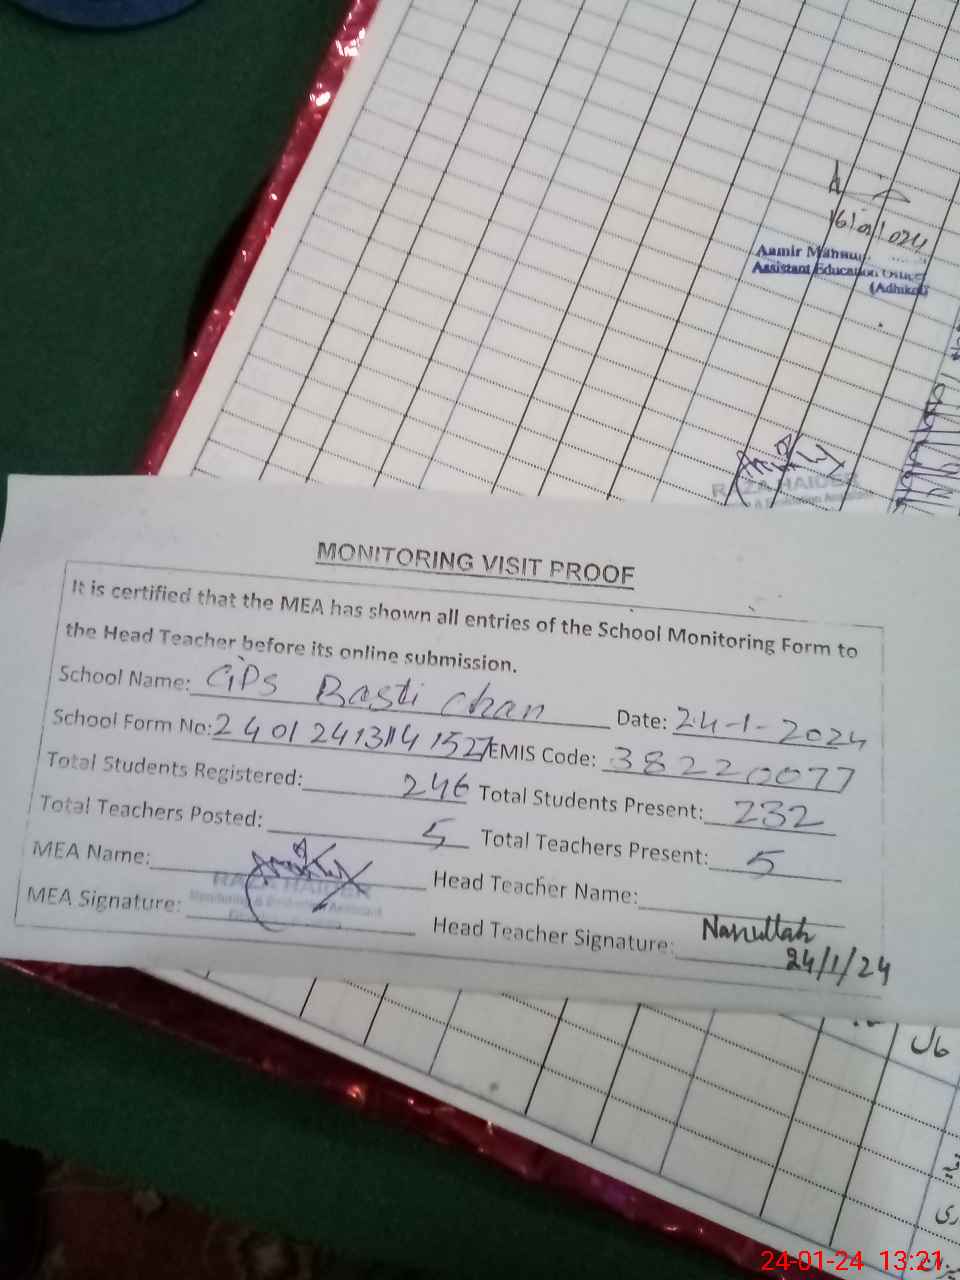 16/01/024
Aamir
Assistant Education
(Adhikot)
RAZA HAIDER
MONITORING VISIT PROOF
It is certified that the MEA has shown all entries of the School Monitoring Form to
the Head Teacher before its online submission.
School Name: GPS Basti Chan Date: 24-1-2024
School Form No: EMIS Code: 38220077
Total Students Registered: 246 Total Students Present: 232
Total Teachers Posted: 5 Total Teachers Present: 5
MEA Name: Head Teacher Name:
RAZA HAIDER
Monitoring & Evaluation Assistant
MEA Signature: Head Teacher Signature:
24/1/24
حال
24-01-24 13:21